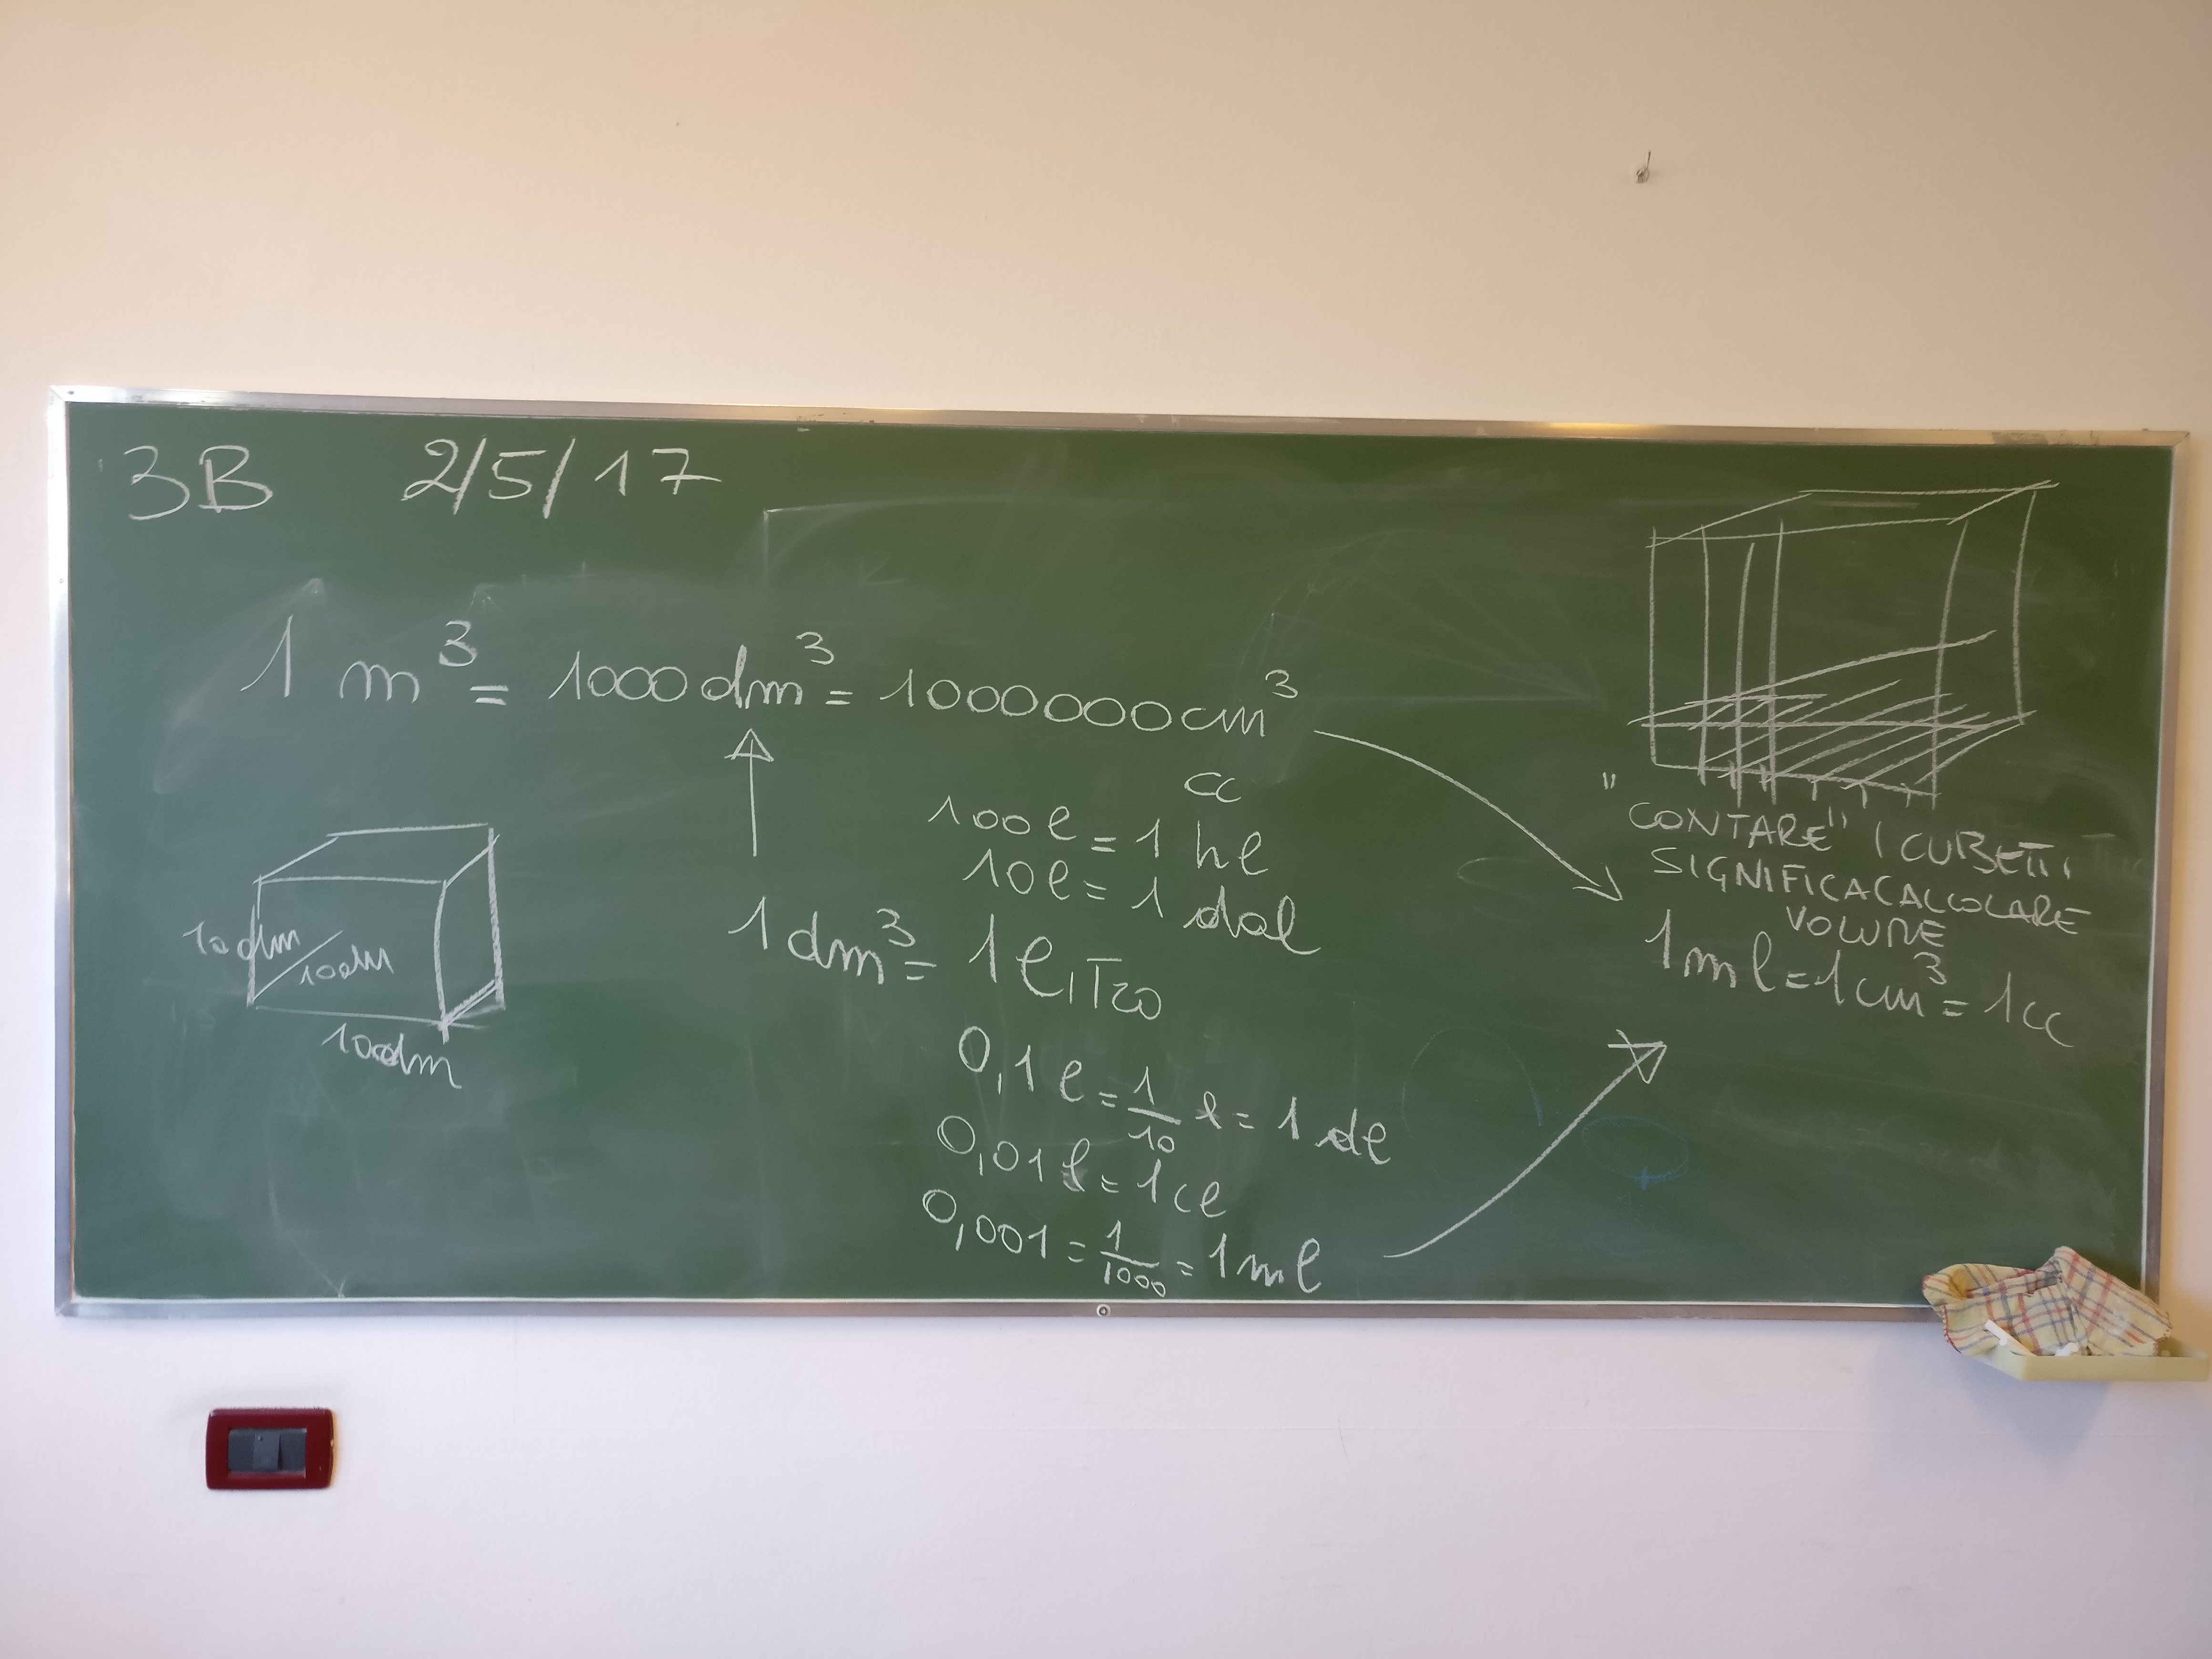 3B 2/5/17
1 m³ = 1000 dm³ = 1000000 cm³
cc
100 l = 1 hl
10 l = 1 dal
1 dm³ = 1 litro
0,1 l = 1/10 l = 1 dl
0,01 l = 1 cl
0,001 = 1/1000 = 1 ml
10 dm
10 dm
10 dm
"CONTARE" I CUBETTI
SIGNIFICA CALCOLARE
VOLUME
1 ml = 1 cm³ = 1 cc